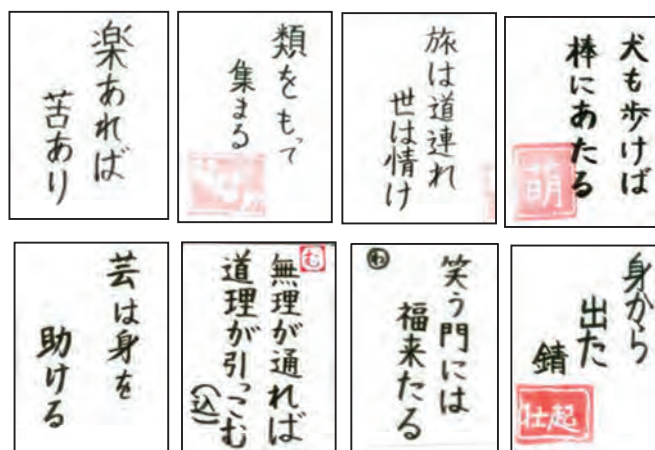 楽あれば
苦あり
類をもって
集まる
旅は道連れ
世は情け
犬も歩けば
棒にあたる
萌
芸は身を
助ける
む
無理が通れば
道理が引っこむ
(込)
わ
笑う門には
福来たる
身から
出た
錆
壮起